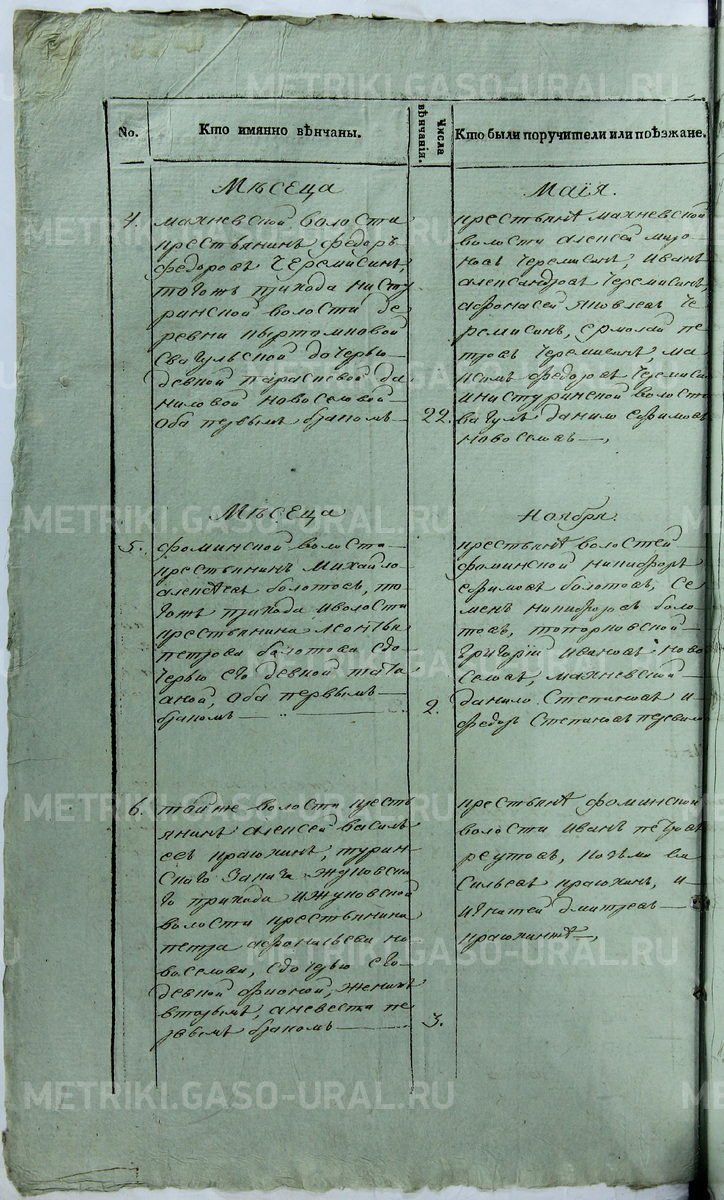 No.
Кто имянно вѣнчаны.
Числа вѣнчанія.
Кто были поручители или поѣзжане.
Мѣсеца
4.
махневской волости
крестьянинъ Федоръ
Федоровъ Черемисинъ,
тогожъ прихода
ринской волости де
ревни
дочерью
девкой параскевой да
ниловой новоселовой
оба первымъ бракомъ
22.
Маія.
крестьянѣ махневской
волости алексей миро
новъ Черемисинъ, иванъ
александровъ Черемисинъ,
афонасей яковлевъ Че
ремисинъ, ермолай пе
тровъ Черемисинъ, ма
ксимъ федоровъ Черемиси
волости
вагулъ данило ефимовъ
новоселовъ
Мѣсеца
5.
фоминской волости
крестьянинъ Михайло
алексѣевъ болотовъ, то
гожъ прихода и волости
крестьянина леонтья
петрова болотова сдо
черью его девкой татья
аной, оба первымъ
бракомъ
2.
Ноября.
крестьянѣ волостей
фоминской никифоръ
ефимовъ болотовъ, се
менъ никифоровъ боло
товъ, топорковской
григорій ивановъ ново
селовъ, махневской
данило Степановъ и
федоръ Степановъ
6.
той же волости кресть
янинъ алексей василь
евъ краюхинъ, турин
скаго
го прихода
волости крестьянина
петра афонасьева но
воселова, сдочерью его
девкой фионой, женихъ
вторымъ, аневеста пе
рвымъ бракомъ
3.
крестьянѣ фоминской
волости иванъ петровъ
реутовъ, козьма ва
сильевъ краюхинъ, и
игнатей дмитревъ
краюхинъ
METRIKI.GASO-URAL.RU